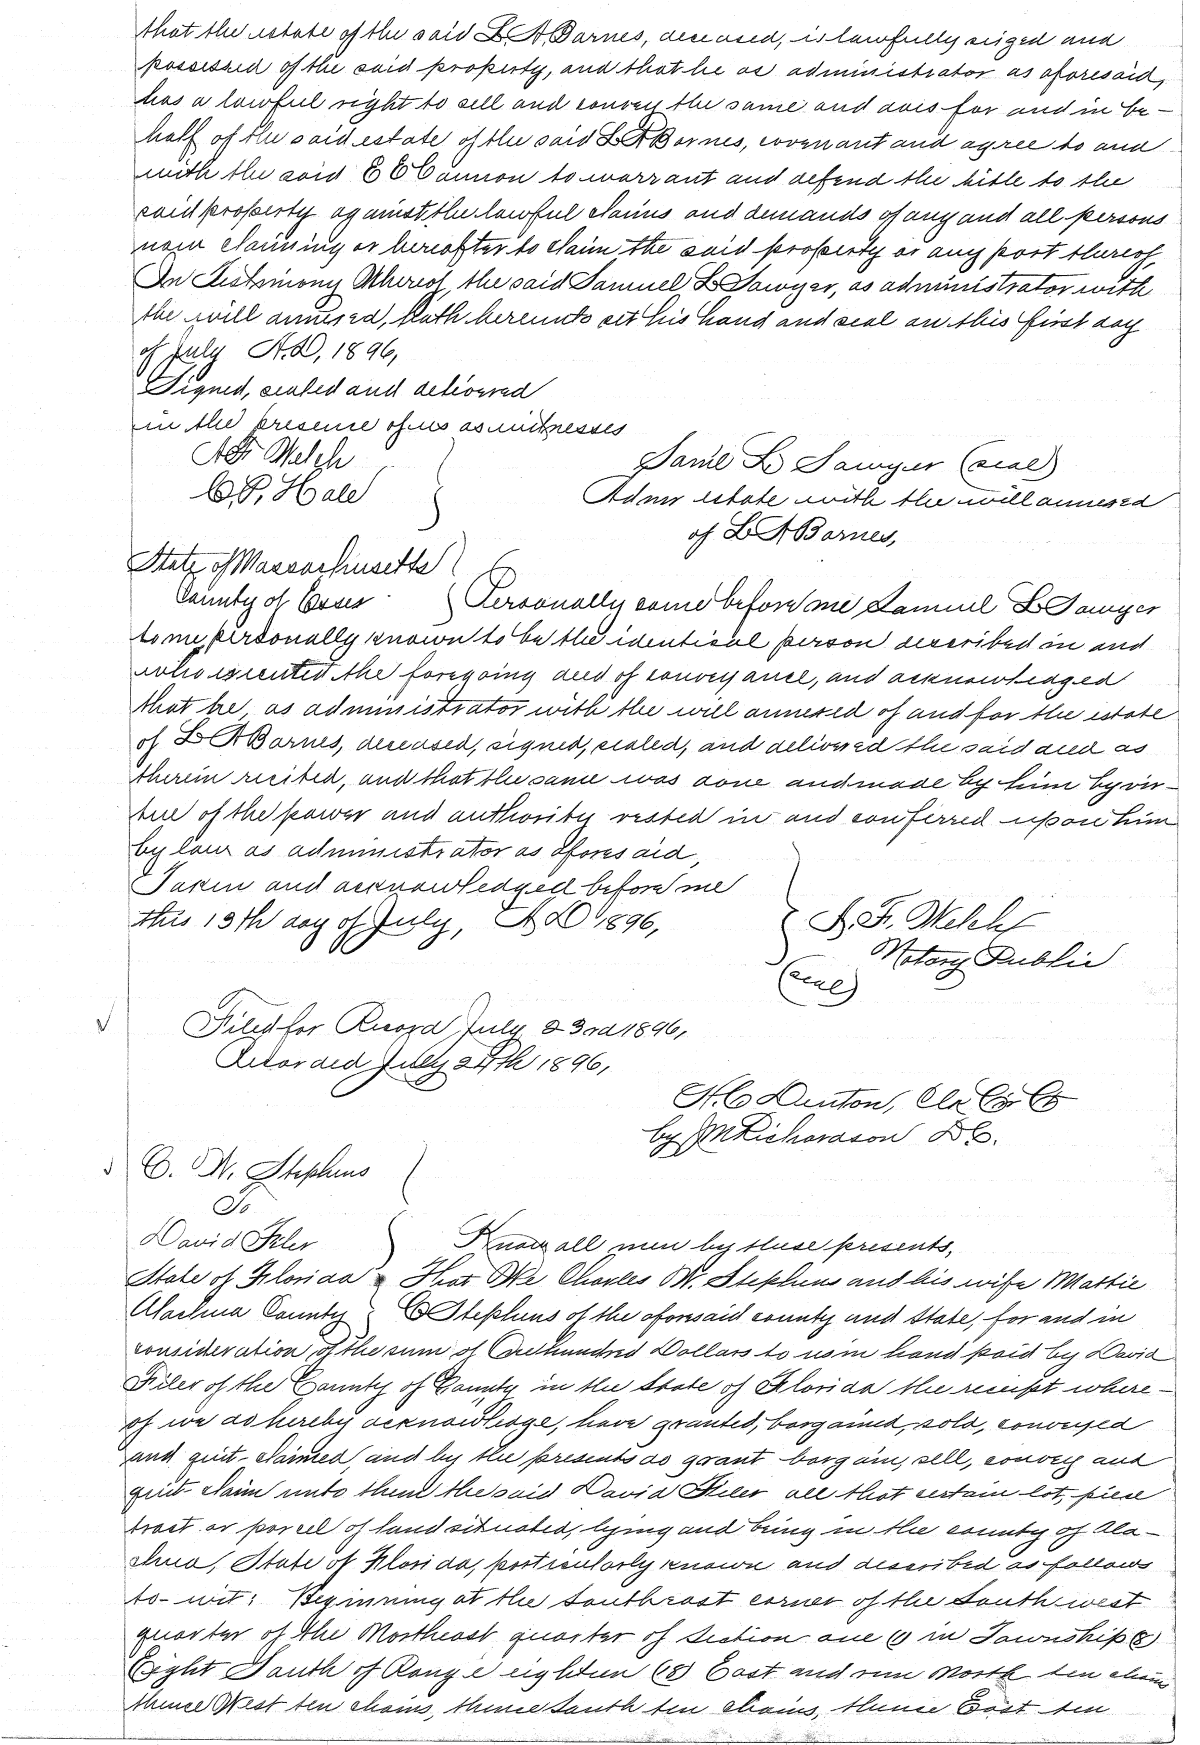 that the estate of the said L. A. Barnes, deceased, is lawfully seized and
possessed of the said property, and that he as administrator as aforesaid,
has a lawful right to sell and convey the same and does for and in be-
half of the said estate of the said L A Barnes, covenant and agree to and
with the said E E Cannon to warrant and defend the title to the
said property against the lawful claims and demands of any and all persons
now claiming or hereafter to claim the said property or any part thereof,
In Testimony Whereof, the said Samuel L Sawyer, as administrator with
the will annexed, hath hereunto set his hand and seal on this first day
of July A.D, 1896,
Signed, sealed and delivered
in the presence of us as witnesses
A F Welch
C. P. Hale
Saml L Sawyer (seal)
Admr estate with the will annexed
of L A Barnes,
State of Massachusetts
County of Essex Personally come before me Samuel L Sawyer
to me personally known to be the identical person described in and
who executed the foregoing deed of conveyance, and acknowledged
that he, as administrator with the will annexed of and for the estate
of L A Barnes, deceased, signed, sealed, and delivered the said deed as
therein recited, and that the same was done and made by him by vir-
tue of the power and authority vested in and conferred upon him
by law as administrator as aforesaid,
Taken and acknowledged before me
this 13th day of July, A D 1896,
A. F. Welch
Notary Public
(seal)
Filed for Record July 23rd 1896,
Recorded July 24th 1896,
H. C Denton, Clk Cir Ct
by JM Richardson D C.
C. W. Stephens
To
David Filer Know all men by these presents,
State of Florida That We Charles W. Stephens and his wife Mattie
Alachua County C Stephens of the aforesaid county and State, for and in
consideration of the sum of One hundred Dollars to us in hand paid by David
Filer of the County of County in the State of Florida the receipt where-
of we do hereby acknowledge, have granted, bargained, sold, conveyed
and quit-claimed, and by the presents do grant bargain, sell, convey and
quit-claim unto them the said David Filer all that certain lot, piece
tract or parcel of land situated, lying and being in the county of Ala-
chua, State of Florida, particularly known and described as follows
to-wit: Beginning at the Southeast corner of the Southwest
quarter of the Northeast quarter of Section one (1) in Township (8)
Eight South of Range eighteen (18) East and run North ten chains
thence West ten chains, thence South ten chains, thence East ten